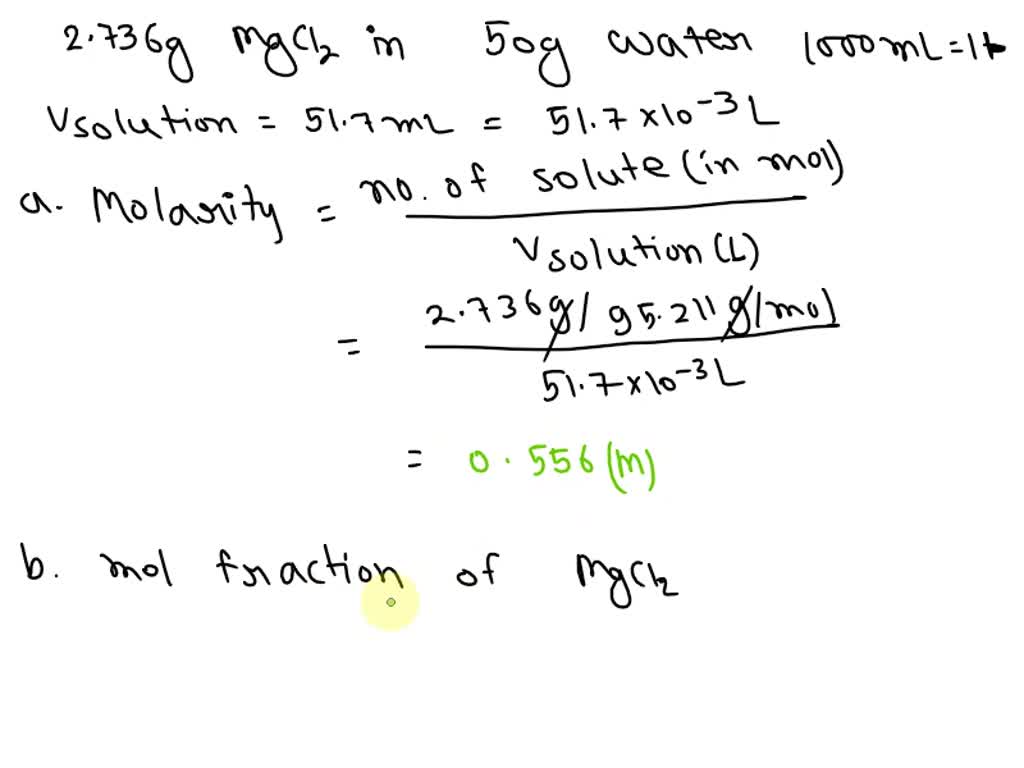 2.736g MgCl2 in 50g water 1000mL=1L
Vsolution = 51.7mL = 51.7×10-3L
a. Molarity = no. of solute (in mol)
Vsolution (L)
= 2.736g/ 95.211g/mol
51.7×10-3L
= 0.556(M)
b. mol fraction of MgCl2